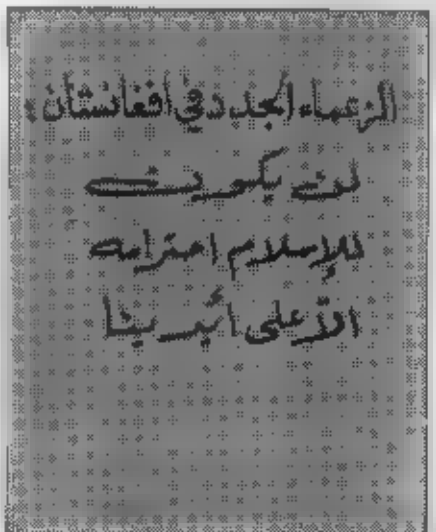 الزعماء الجدد في أفغانستان :
لن يكون
للإسلام احترامه
الأعلى